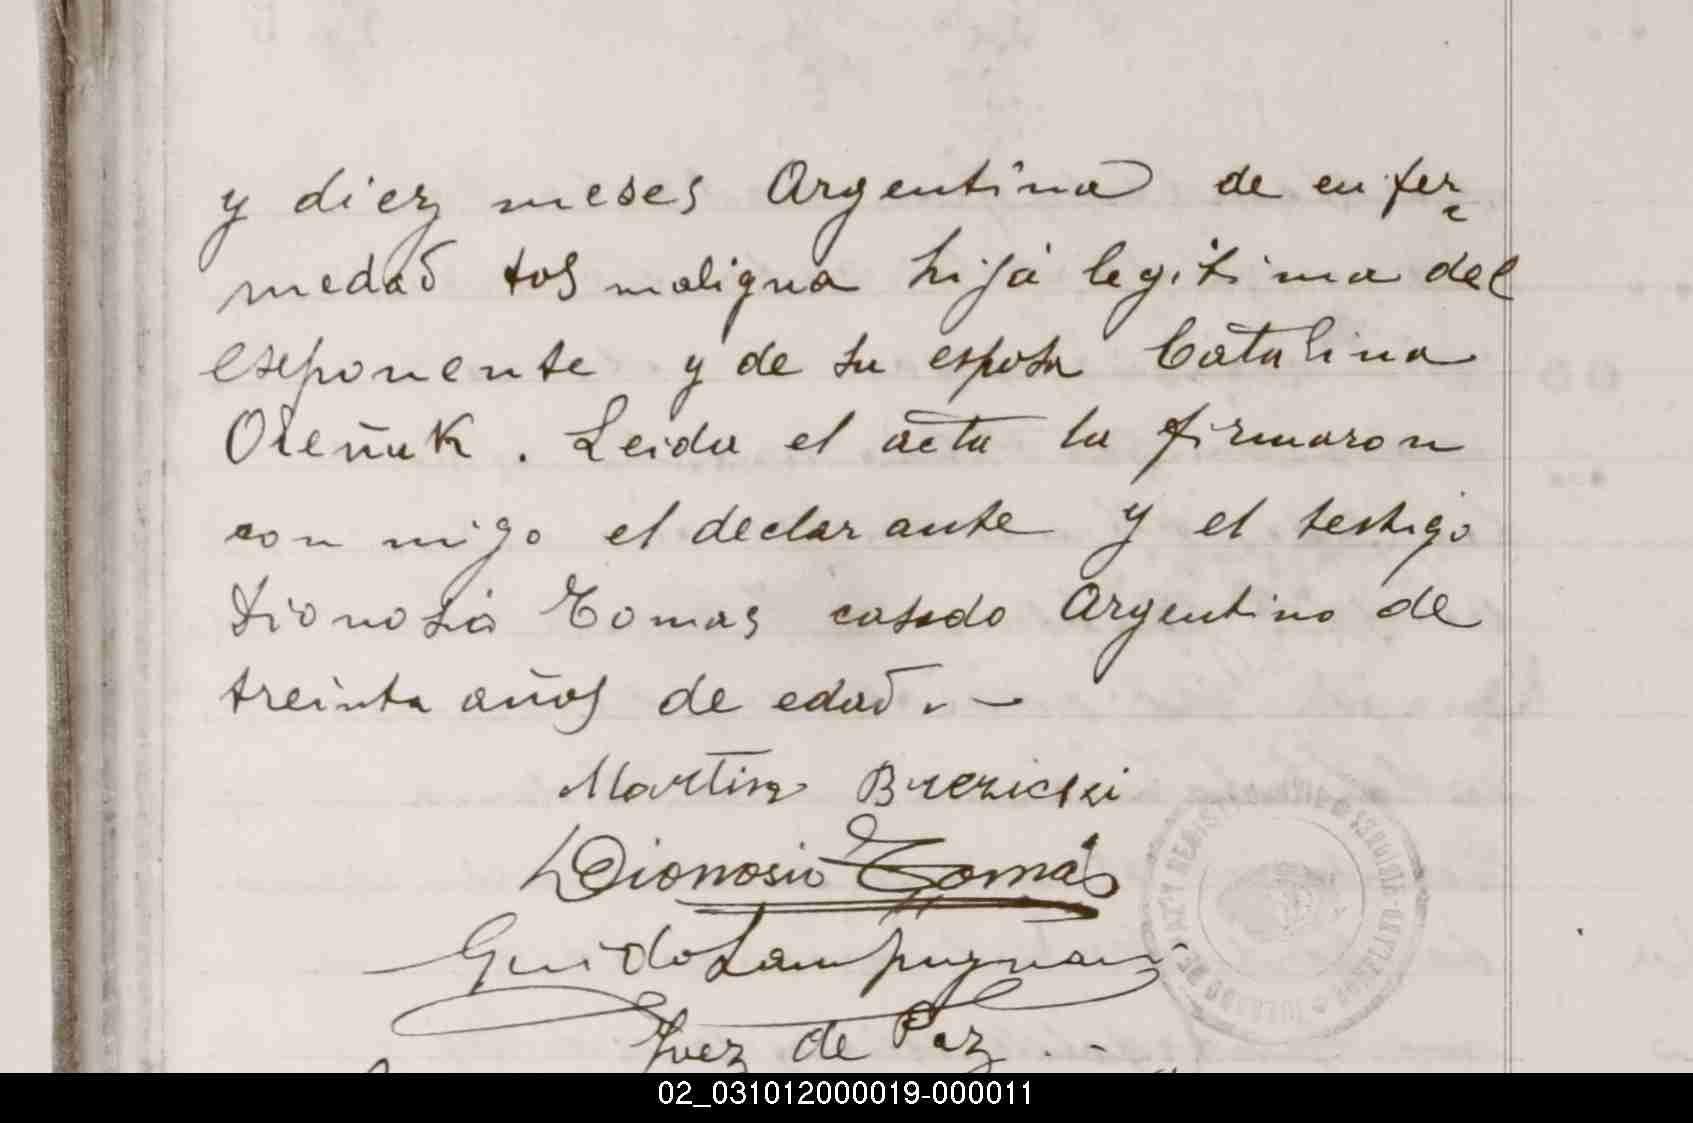 y diez meses Argentina de enfer
medad tos maligna hija legitima del
esponente y de su esposa Catalina
Oleñuk. Leida el acta la firmaron
con migo el declarante y el testigo
Dionosio Tomas casado Argentino de
treinta años de edad. -
Martin Brezicki
Dionosio Tomás
Guido Lampugnani
Juez de Paz. -
JUZGADO DE PAZ Y REGISTRO
02_031012000019-000011